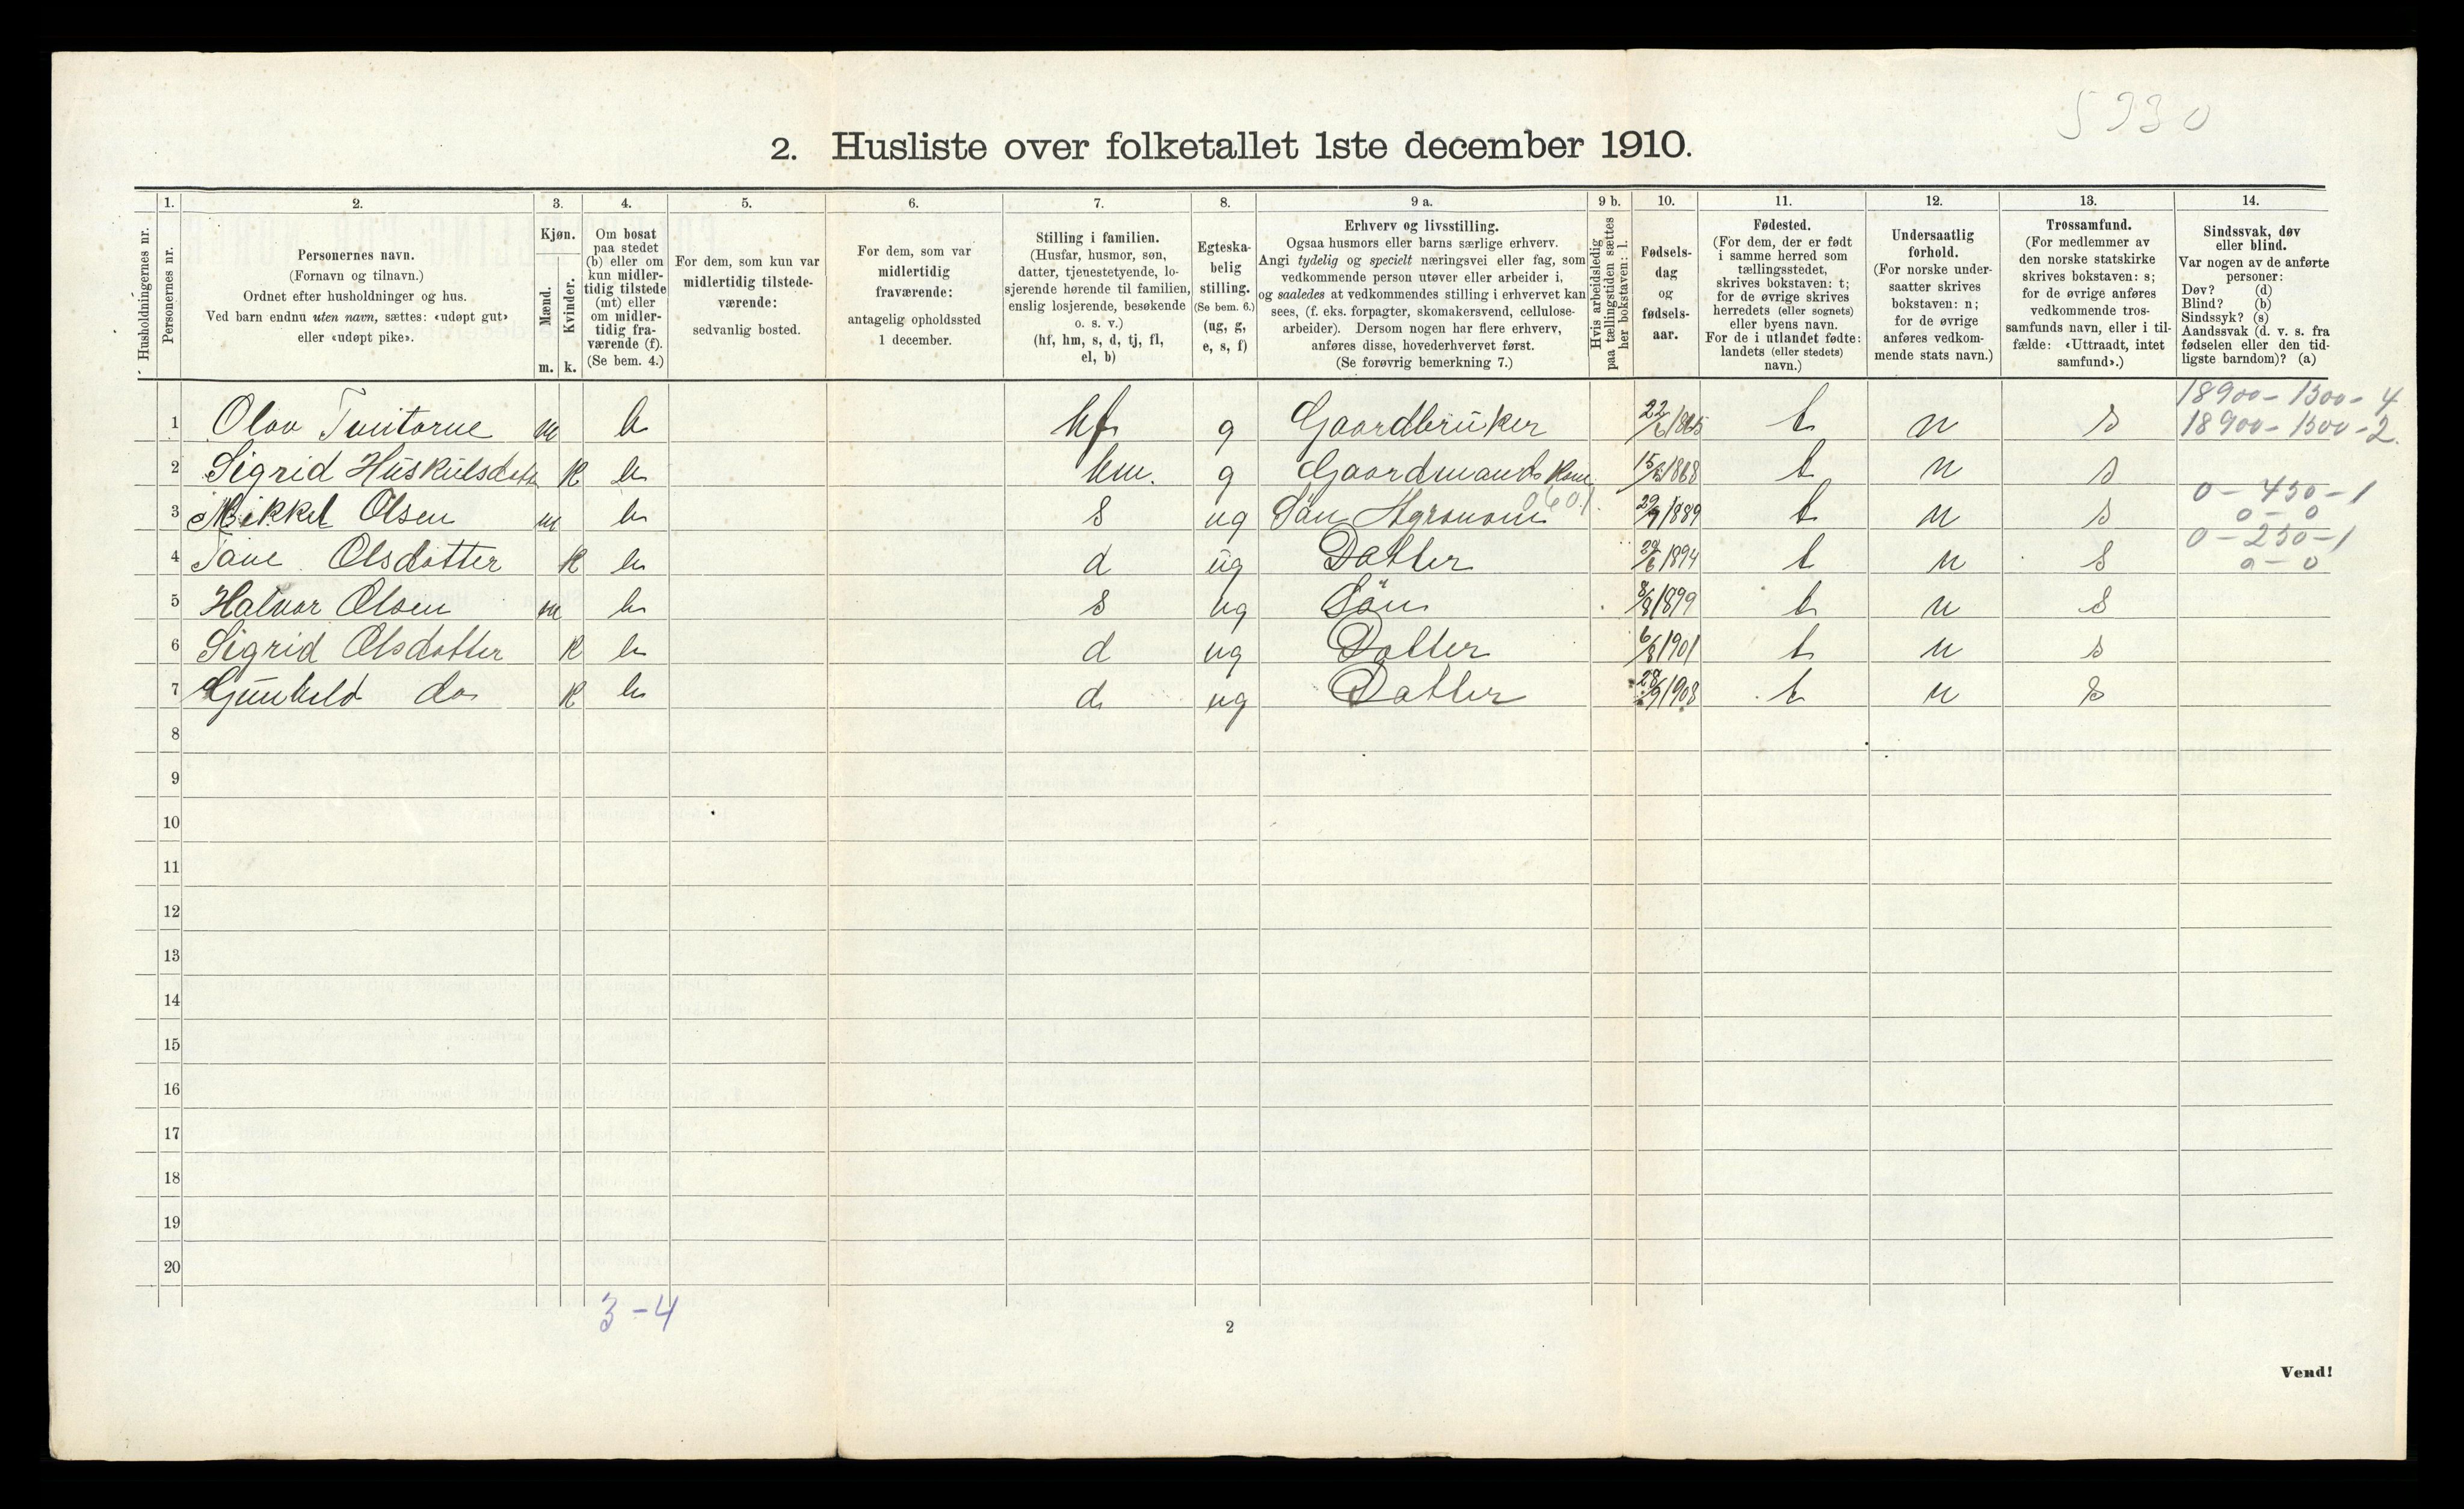 5930
2. Husliste over folketallet 1ste december 1910.
Husholdningernes nr.
1.
Personernes nr.
2.
Personernes navn.
(Fornavn og tilnavn.)
Ordnet efter husholdninger og hus.
Ved barn endnu uten navn, sættes: «udøpt gut»
eller «udøpt pike».
3.
Kjøn.
Mænd.
Kvinder.
m. k.
4.
Om bosat
paa stedet
(b) eller om
kun midler-
tidig tilstede
(mt) eller
om midler-
tidig fra-
værende (f).
(Se bem. 4.)
5.
For dem, som kun var
midlertidig tilstede-
værende:
sedvanlig bosted.
6.
For dem, som var
midlertidig
fraværende:
antagelig opholdssted
1 december.
7.
Stilling i familien.
(Husfar, husmor, søn,
datter, tjenestetyende, lo-
sjerende hørende til familien,
enslig losjerende, besøkende
o. s. v.)
(hf, hm, s, d, tj, fl,
el, b)
8.
Egteska-
belig
stilling.
(Se bem. 6.)
(ug, g,
e, s, f)
9 a.
Erhverv og livsstilling.
Ogsaa husmors eller barns særlige erhverv.
Angi tydelig og specielt næringsvei eller fag, som
vedkommende person utøver eller arbeider i,
og saaledes at vedkommendes stilling i erhvervet kan
sees, (f. eks. forpagter, skomakersvend, cellulose-
arbeider). Dersom nogen har flere erhverv,
anføres disse, hovederhvervet først.
(Se forøvrig bemerkning 7.)
9 b.
Hvis arbeidsledig
paa tællingstiden sættes
her bokstaven: l.
10.
Fødsels-
dag
og
fødsels-
aar.
11.
Fødested.
(For dem, der er født
i samme herred som
tællingsstedet,
skrives bokstaven: t;
for de øvrige skrives
herredets (eller sognets)
eller byens navn.
For de i utlandet fødte:
landets (eller stedets)
navn.)
12.
Undersaatlig
forhold.
(For norske under-
saatter skrives
bokstaven: n;
for de øvrige
anføres vedkom-
mende stats navn.)
13.
Trossamfund.
(For medlemmer av
den norske statskirke
skrives bokstaven: s;
for de øvrige anføres
vedkommende tros-
samfunds navn, eller i til-
fælde: «Uttraadt, intet
samfund».)
14.
Sindssvak, døv
eller blind.
Var nogen av de anførte
personer:
Døv? (d)
Blind? (b)
Sindssyk? (s)
Aandssvak (d. v. s. fra
fødselen eller den tid-
ligste barndom)? (a)
18900-1500-4
1 Olav Tveitane m b hf g Gaardbruker 22/6 1865 t n s 18900-1500-2.
2 Sigrid Huskulsdatter k b hm. g Gaardmands Kone 1868 t n s
0-450-1
3 Mikkel Olsen m b s ug Søn Agronom 0601. 29/9 1889 t n s 0-0
0-250-1
4 Tane Olsdotter k b d ug Datter 1894 t n s 0-0
5 Halvor Olsen m b s ug Søn 8/8 1899 t n s
6 Sigrid Olsdatter k b d ug Datter 6/8 1901 t n s
7 Gunhild do k b d ug Datter 28/9 1908 t n s
8
9
10
11
12
13
14
15
16
17
18
19
20
3-4
2
Vend!